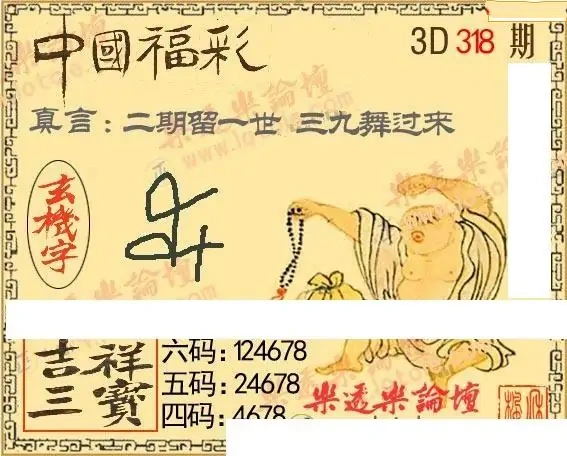 中國福彩
3D 318 期
真言：二期留一世 三九舞过来
玄機字
吉祥
三寶
六码：124678
五码：24678
四码：4678
樂透樂論壇